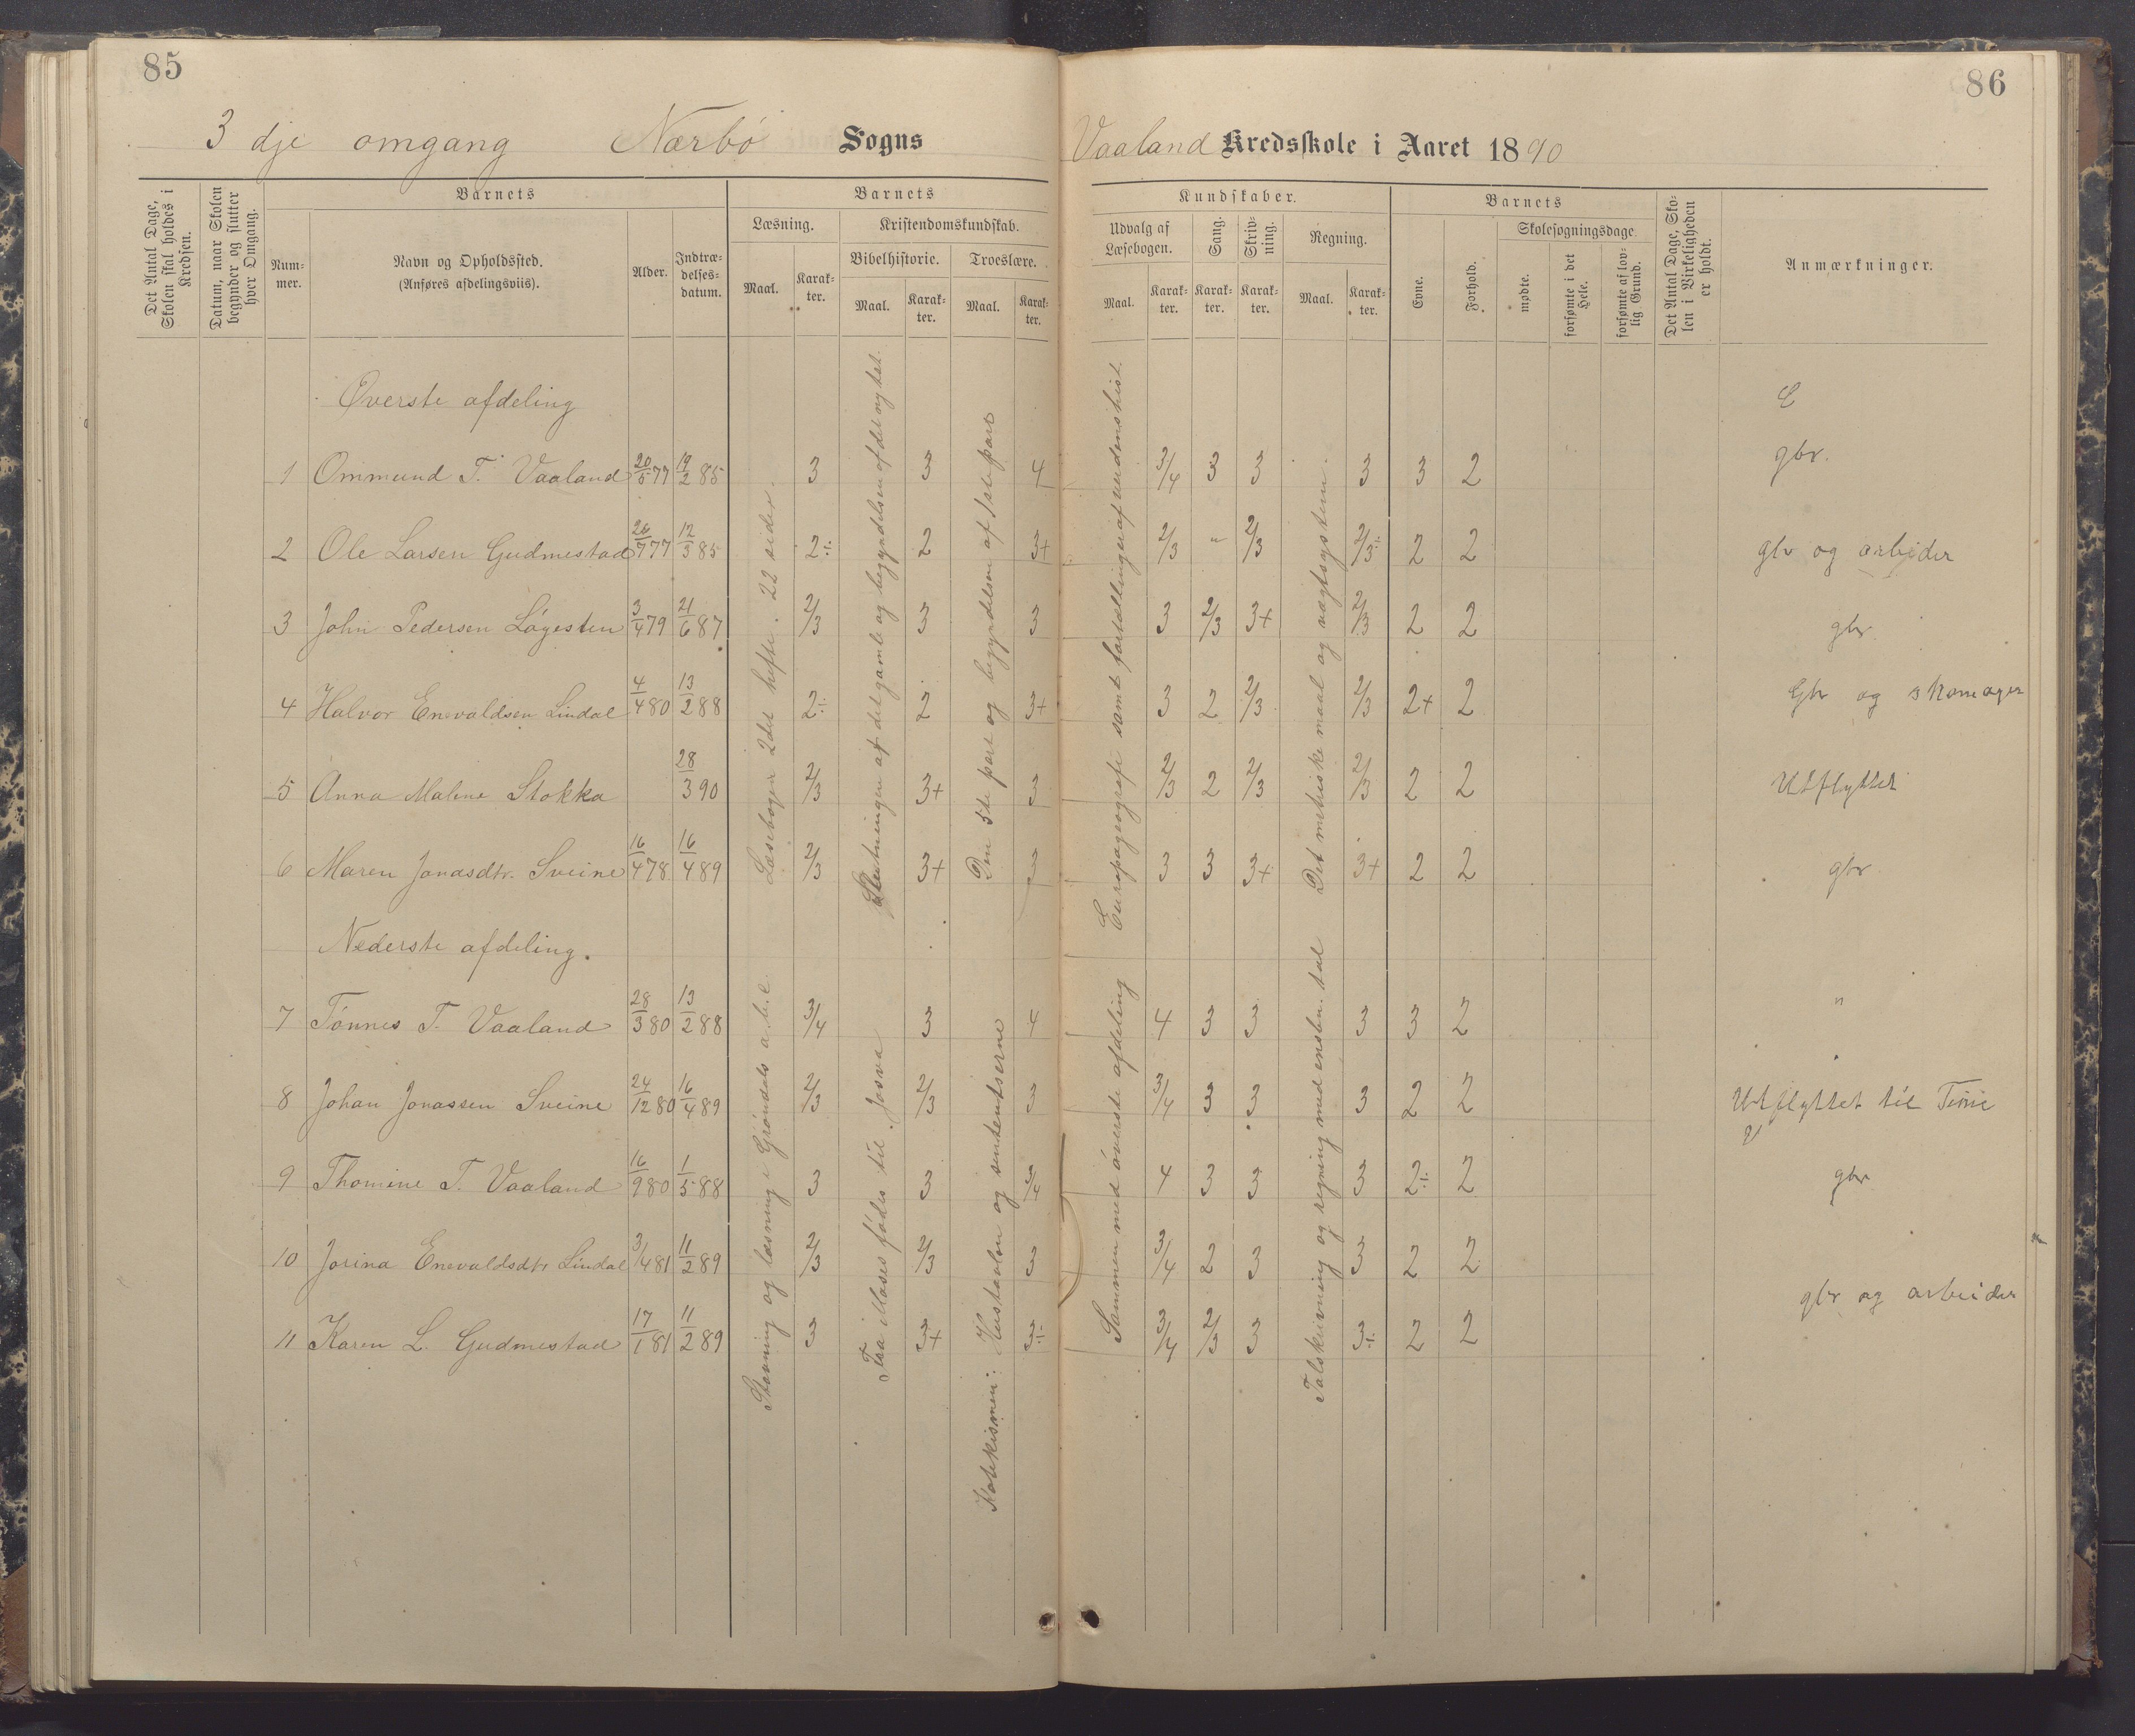 85
86
3 dje omgang Nærbö Sogns Vaaland Kredsskole i Aaret 1890
Det Antal Dage, Skolen skal holdes i Kredsen.
Datum, naar Skolen begynder og slutter hver Omgang.
Barnets
Num-mer.
Navn og Opholdssted.
(Anføres afdelingsviis).
Alder.
Indtræ-delses-datum.
Barnets
Læsning.
Maal.
Karak-ter.
Kristendomskundskab.
Bibelhistorie.
Maal.
Karak-ter.
Troeslære.
Maal.
Karak-ter.
Kundskaber.
Udvalg af Læsebogen.
Maal.
Karak-ter.
Sang.
Karak-ter.
Skriv-ning.
Karak-ter.
Regning.
Maal.
Karak-ter.
Barnets
Evne.
Forhold.
Skolesøgningsdage.
mødte.
forsømte i det Hele.
forsømte af lov-lig Grund.
Det Antal Dage, Sko-len i Virkeligheden er holdt.
Anmærkninger.
Øverste afdeling
1 Ommund T. Vaaland 20/5 77 19/2 85 3 3 4 3/4 3 3 3 3 2 gbr.
2 Ole Larsen Gudmestad 26/7 77 12/3 85 2÷ 2 3+ 2/3 " 2/3 2/3÷ 2 2 gbr og arbeider
3 John Pedersen Lógesten 3/4 79 21/6 87 2/3 3 3 3 2/3 3+ 2/3 2 2 gbr
4 Halvor Enevaldsen Lindal 4/4 80 13/2 88 2÷ 2 3+ 3 2 2/3 2/3 2+ 2 Gbr og skomager
5 Anna Malene Stokka 28/3 90 2/3 3+ 3 2/3 2 2/3 2/3 2 2 Utflyttet
6 Maren Jonasdtr. Sveine 16/4 78 16/4 89 2/3 3+ 3 3 3 3+ 3+ 2 2 gbr
Læsebogen 2det hefte. 22 sider.
Slutningen af det gamle og begyndelsen af det nye tst.
Den 5te part og begyndelsen af 1ste part
Europageografi samt fortællinger af verdenshist.
Det metriske maal og vægtsystem.
Nederste afdeling.
7 Tönnes T. Vaaland 28/3 80 13/2 88 3/4 3 4 4 3 3 3 3 2 "
8 Johan Jonassen Sveine 24/12 80 16/4 89 2/3 2/3 3 3/4 3 3 3 2 2 Utflyttet til Time
9 Thomine T. Vaaland 16/9 80 1/5 88 3 3 3/4 4 3 3 3 2÷ 2 gbr
10 Jorina Enevaldsdtr Lindal 3/4 81 11/2 89 2/3 2/3 3 3/4 2 3 3 2 2
11 Karen L. Gudmestad 17/1 81 11/2 89 3 3+ 3÷ 3/4 2/3 3 3÷ 2 2 gbr og arbeider
Staving og læsning i Gröndals a.b.c
Fra Moses födes til Josva
Katekismen: Hustavlen og sententserne
Sammen med överste afdeling
Talskrivning og regning med ensben. tal